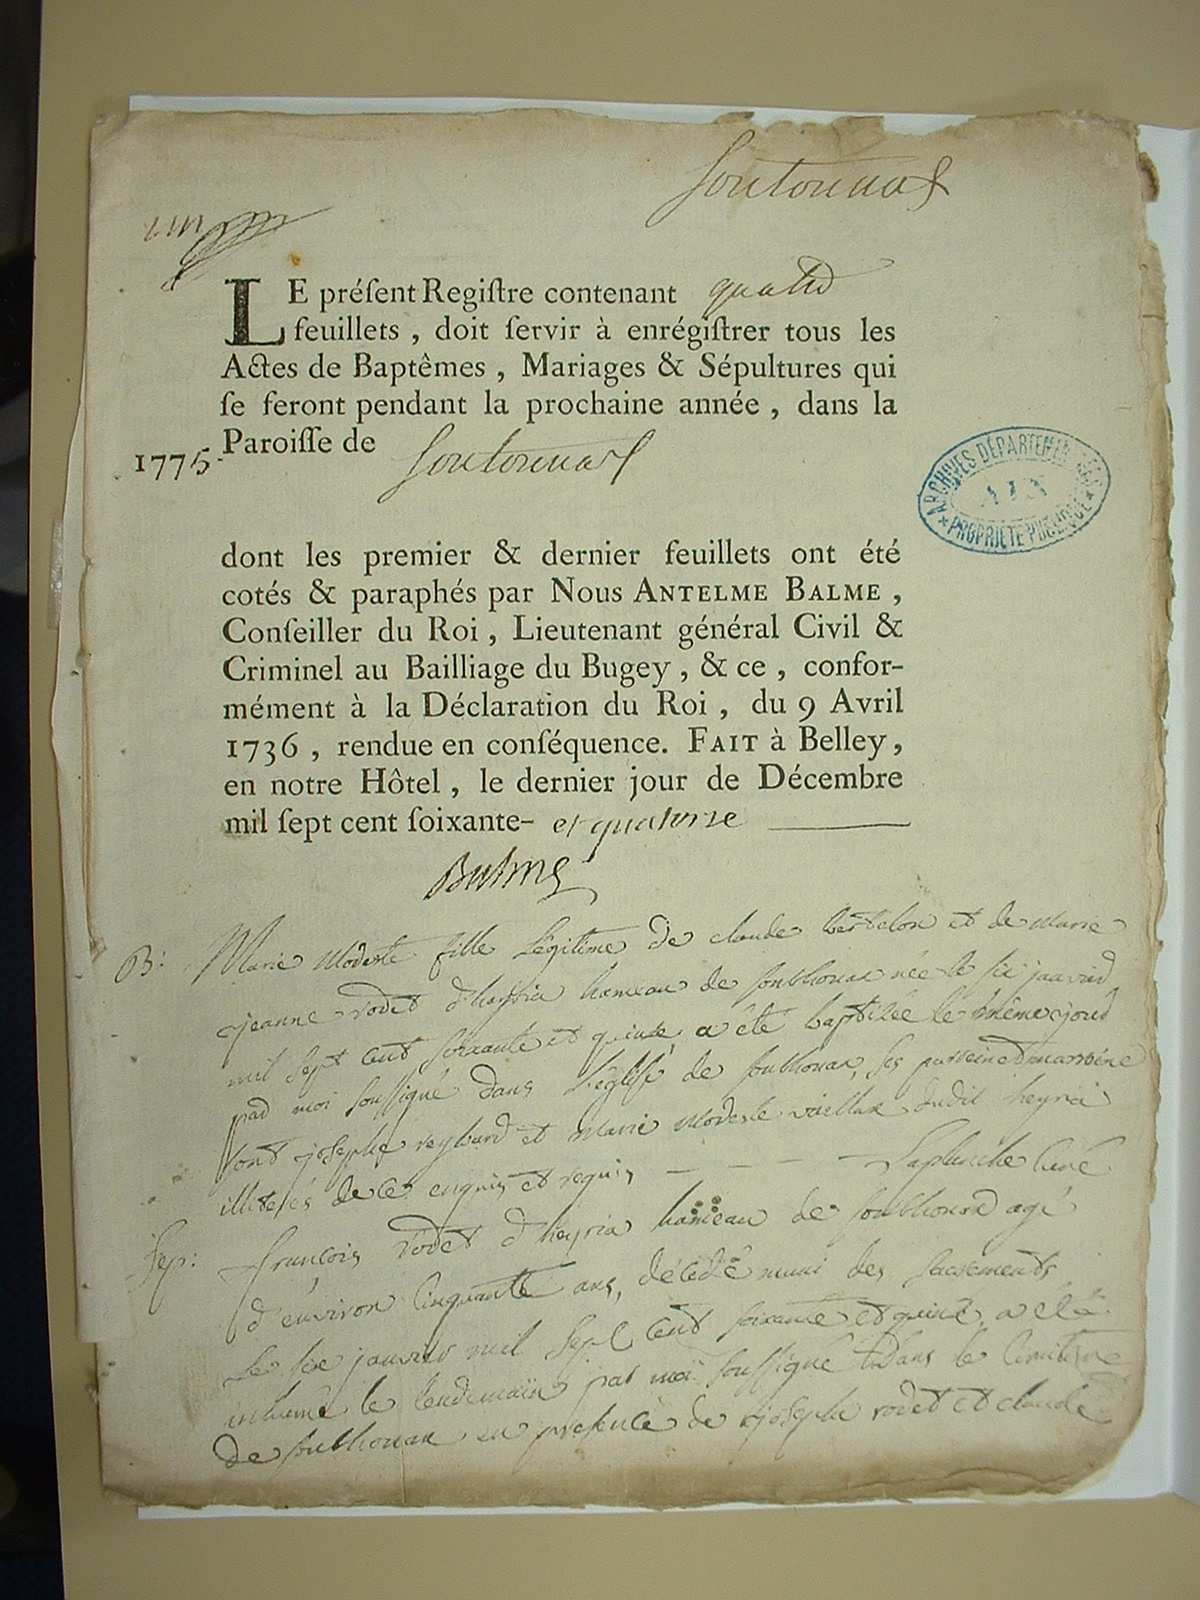 Sontonnas
un
LE préſent Regiſtre contenant quatre
feuillets, doit ſervir à enrégiſtrer tous les
Actes de Baptêmes, Mariages & Sépultures qui
ſe feront pendant la prochaine année, dans la
1775. Paroiſſe de Sontonnas
ARCHIVES DÉPARTEMENTALES
AIN
PROPRIÉTÉ PUBLIQUE
dont les premier & dernier feuillets ont été
cotés & paraphés par Nous ANTELME BALME,
Conſeiller du Roi, Lieutenant général Civil &
Criminel au Bailliage du Bugey, & ce, confor-
mément à la Déclaration du Roi, du 9 Avril
1736, rendue en conſéquence. FAIT à Belley,
en notre Hôtel, le dernier jour de Décembre
mil ſept cent ſoixante- et quatorze
Balme
B: Marie Modeste fille légitime de claude bertelon et de Marie
jeanne rodet d'heyria hameau de sonthonax née le six janvier
mil sept cent soixante et quinze, a été baptisée le même jour
par moi soussigné dans l'église de sonthonax, ses parrein et marreine
sont josephe reybard et Marie Modeste dudit heyria
illiterés de ce enquis et requis - - - - Laplanche curé
Sep: françois rodet d'heyria hameau de sonthonax agé
d'environ cinquante ans, décédé muni des sacrements
le six janvier mil sept cent soixante et quinze, a été
inhumé le lendemain par moi soussigné dans le cimitiere
de sonthonax en presence de josephe rodet et claude